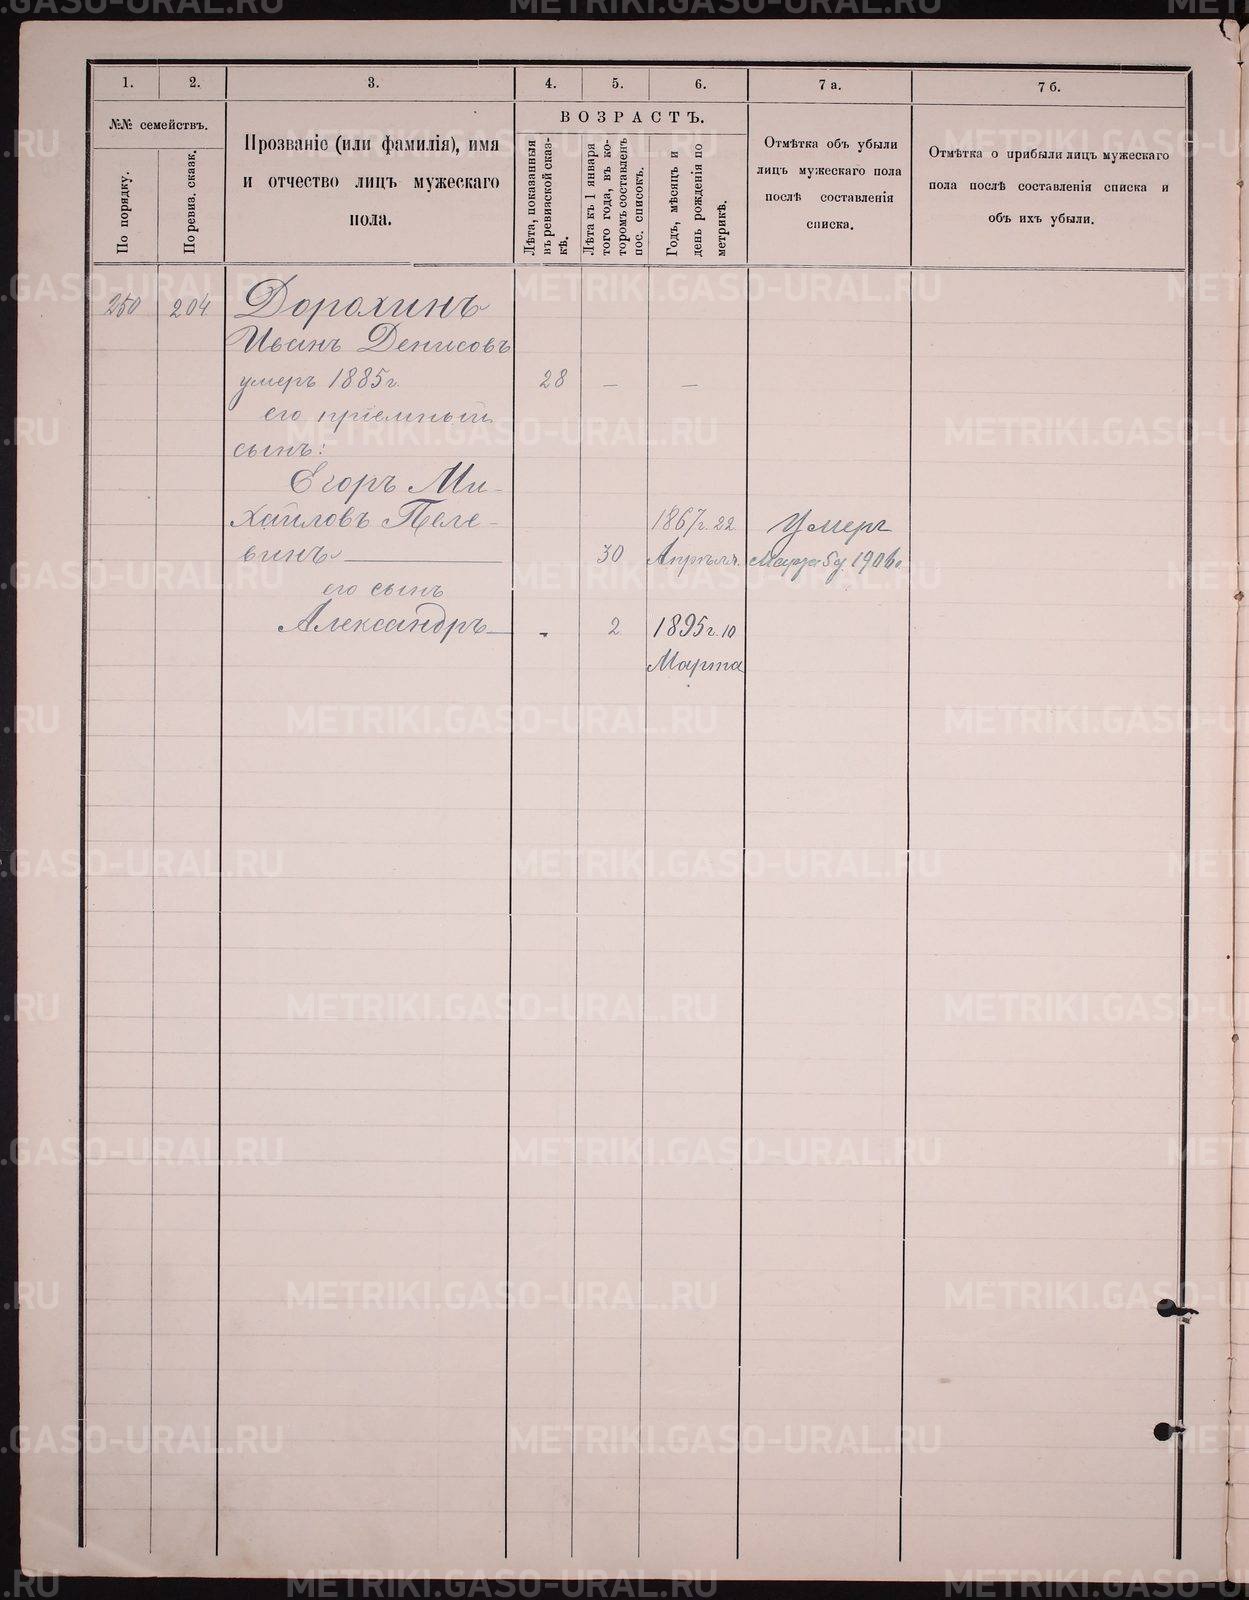 1.
2.
3.
4.
5.
6.
7 а.
7 б.
№№ семействъ.
По порядку.
По ревиз. сказк.
Прозваніе (или фамилія), имя
и отчество лицъ мужескаго
пола.
ВОЗРАСТЪ.
Лѣта, показанныя
въ ревизской сказ-
кѣ.
Лѣта къ 1 января
того года, въ ко-
торомъ составленъ
пос. списокъ.
Годъ, мѣсяцъ и
день рожденія по
метрикѣ.
Отмѣтка объ убыли
лицъ мужескаго пола
послѣ составленія
списка.
Отмѣтка о прибыли лицъ мужескаго
пола послѣ составленія списка и
объ ихъ убыли.
250 204 Дорохинъ
Иванъ Денисовъ
умеръ 1885 г. 28 — —
его пріемный
сынъ:
Егоръ Ми-
хайловъ Пеле- 1867 г. 22 Умеръ
винъ 30 Апрѣля. Марта 5 д. 1906 г.
его сынъ
Александръ - 2 1895 г. 10
Марта
METRIKI.GASO-URAL.RU